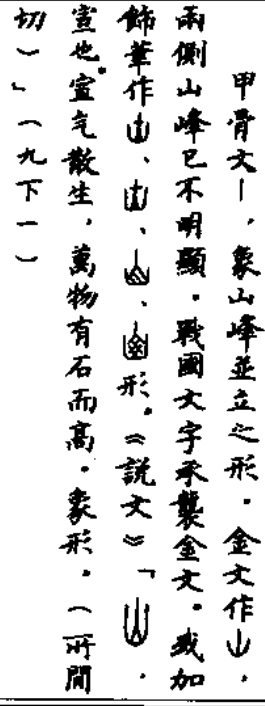 甲骨文｜，象山峰並立之形。金文作山，
兩側山峰已不明顯。戰國文字承襲金文。或加
飾筆作、、、形。《說文》「，
宣也。宣气散生，萬物有石而高。象形。（所閒
切）」（九下一）